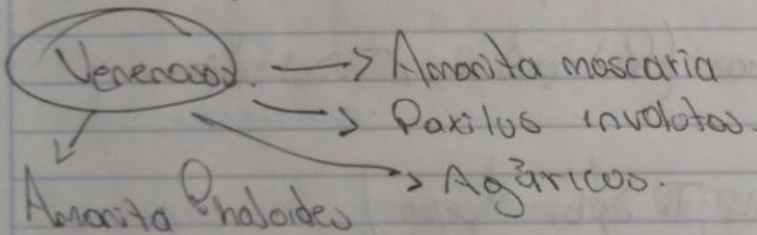 Venenosos. → Amanita moscaria
→ Paxilus involotos.
→ Agáricos.
Amanita Phaloides